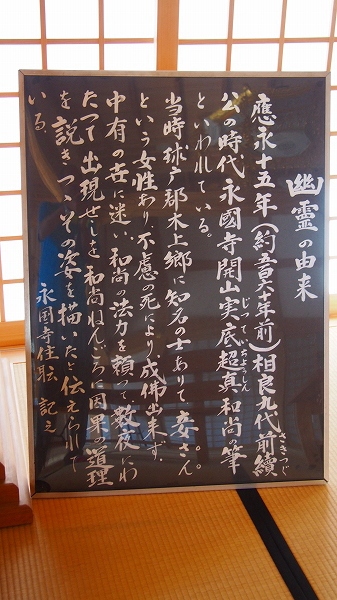 幽霊の由来
應永十五年(約五百六十年前)相良九代前續
さきつぐ
公の時代永國寺開山実底超真和尚の筆
じつていちょうしん
といわれている。
当時球戸郡木上郷に知名の士ありて妾さん
という女性あり不慮の死により成佛出来ず、
中有の苦に迷い、和尚の法力を頼って数夜にわ
たって出現せしを和尚ねんごろに因果の道理
を説きつゝその姿を描いたと伝えられて
いる。
永国寺住職 記之